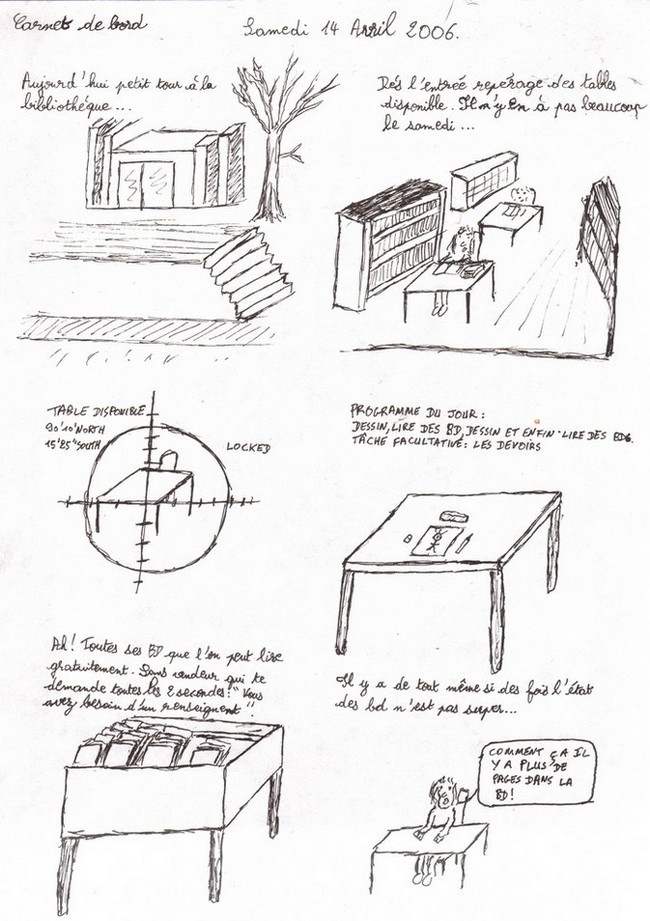 Carnets de bord
Samedi 14 Avril 2006.
Aujourd'hui petit tour à la
bibliothéque...
Dés l'entrée repérage des tables
disponible. Il n'y En à pas beaucoup
le samedi...
TABLE DISPONIBLE
90°10"NORTH
15'85"SOUTH
LOCKED
PROGRAMME DU JOUR:
DESSIN, LIRE DES BD, DESSIN ET ENFIN LIRE DES BDS.
TÂCHE FACULTATIVE: LES DEVOIRS
Ah! Toutes ses BD que l'on peut lire
gratuitement. Sans vendeur qui te
demande toutes les 2 secondes: "Vous
avez besoin d'un renseignent"!
Il y a de tout même si des fois l'état
des bd n'est pas super...
COMMENT ÇA IL
Y A PLUS DE
PAGES DANS LA
BD!